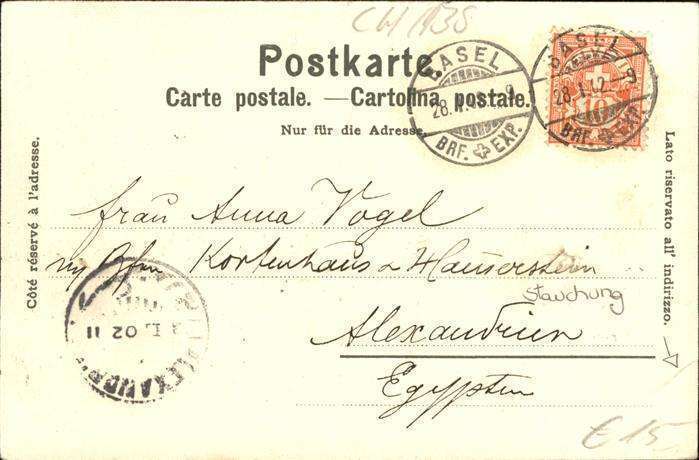 CH 135
Postkarte.
Carte postale. — Cartolina postale.
Nur für die Adresse.
BASEL
BRF. EXP.
BASEL
28.I.02
9
BRF. EXP.
10
Côté réservé à l'adresse.
Lato riservato all' indirizzo.
Frau Anna Vogel
Kortenhaus & Hauserstein
Stauchung
Alexandrien
Egypten
ALEXANDR
02 11
€ 15